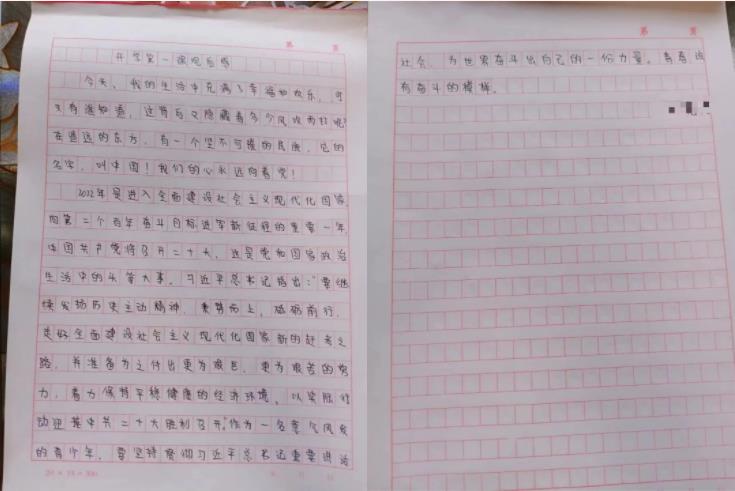 第 页
开学第一课观后感
今天，我的生活中充满了幸福和欢乐，可
又有谁知道，这背后又隐藏着多少风吹雨打呢？
在遥远的东方，有一个坚不可摧的民族，它的
名字，叫中国！我们的心永远向着党！
2022年是进入全面建设社会主义现代化国家
向第二个百年奋斗目标进军新征程的重要一年，
中国共产党将召开二十大，这是党和国家政治
生活中的头等大事。习近平总书记指出：“要继
续发扬历史主动精神，乘势而上，砥砺前行，
走好全面建设社会主义现代化国家新的赶考之
路，并准备为之付出更为艰巨、更为艰苦的努
力，着力保持平稳健康的经济环境。以实际行
动迎接中共二十大胜利召开”作为一名意气风发
的青少年，要坚持贯彻习近平总书记重要讲话
第 页
社会、为世界奋斗出自己的一份力量。青春该
有奋斗的模样。